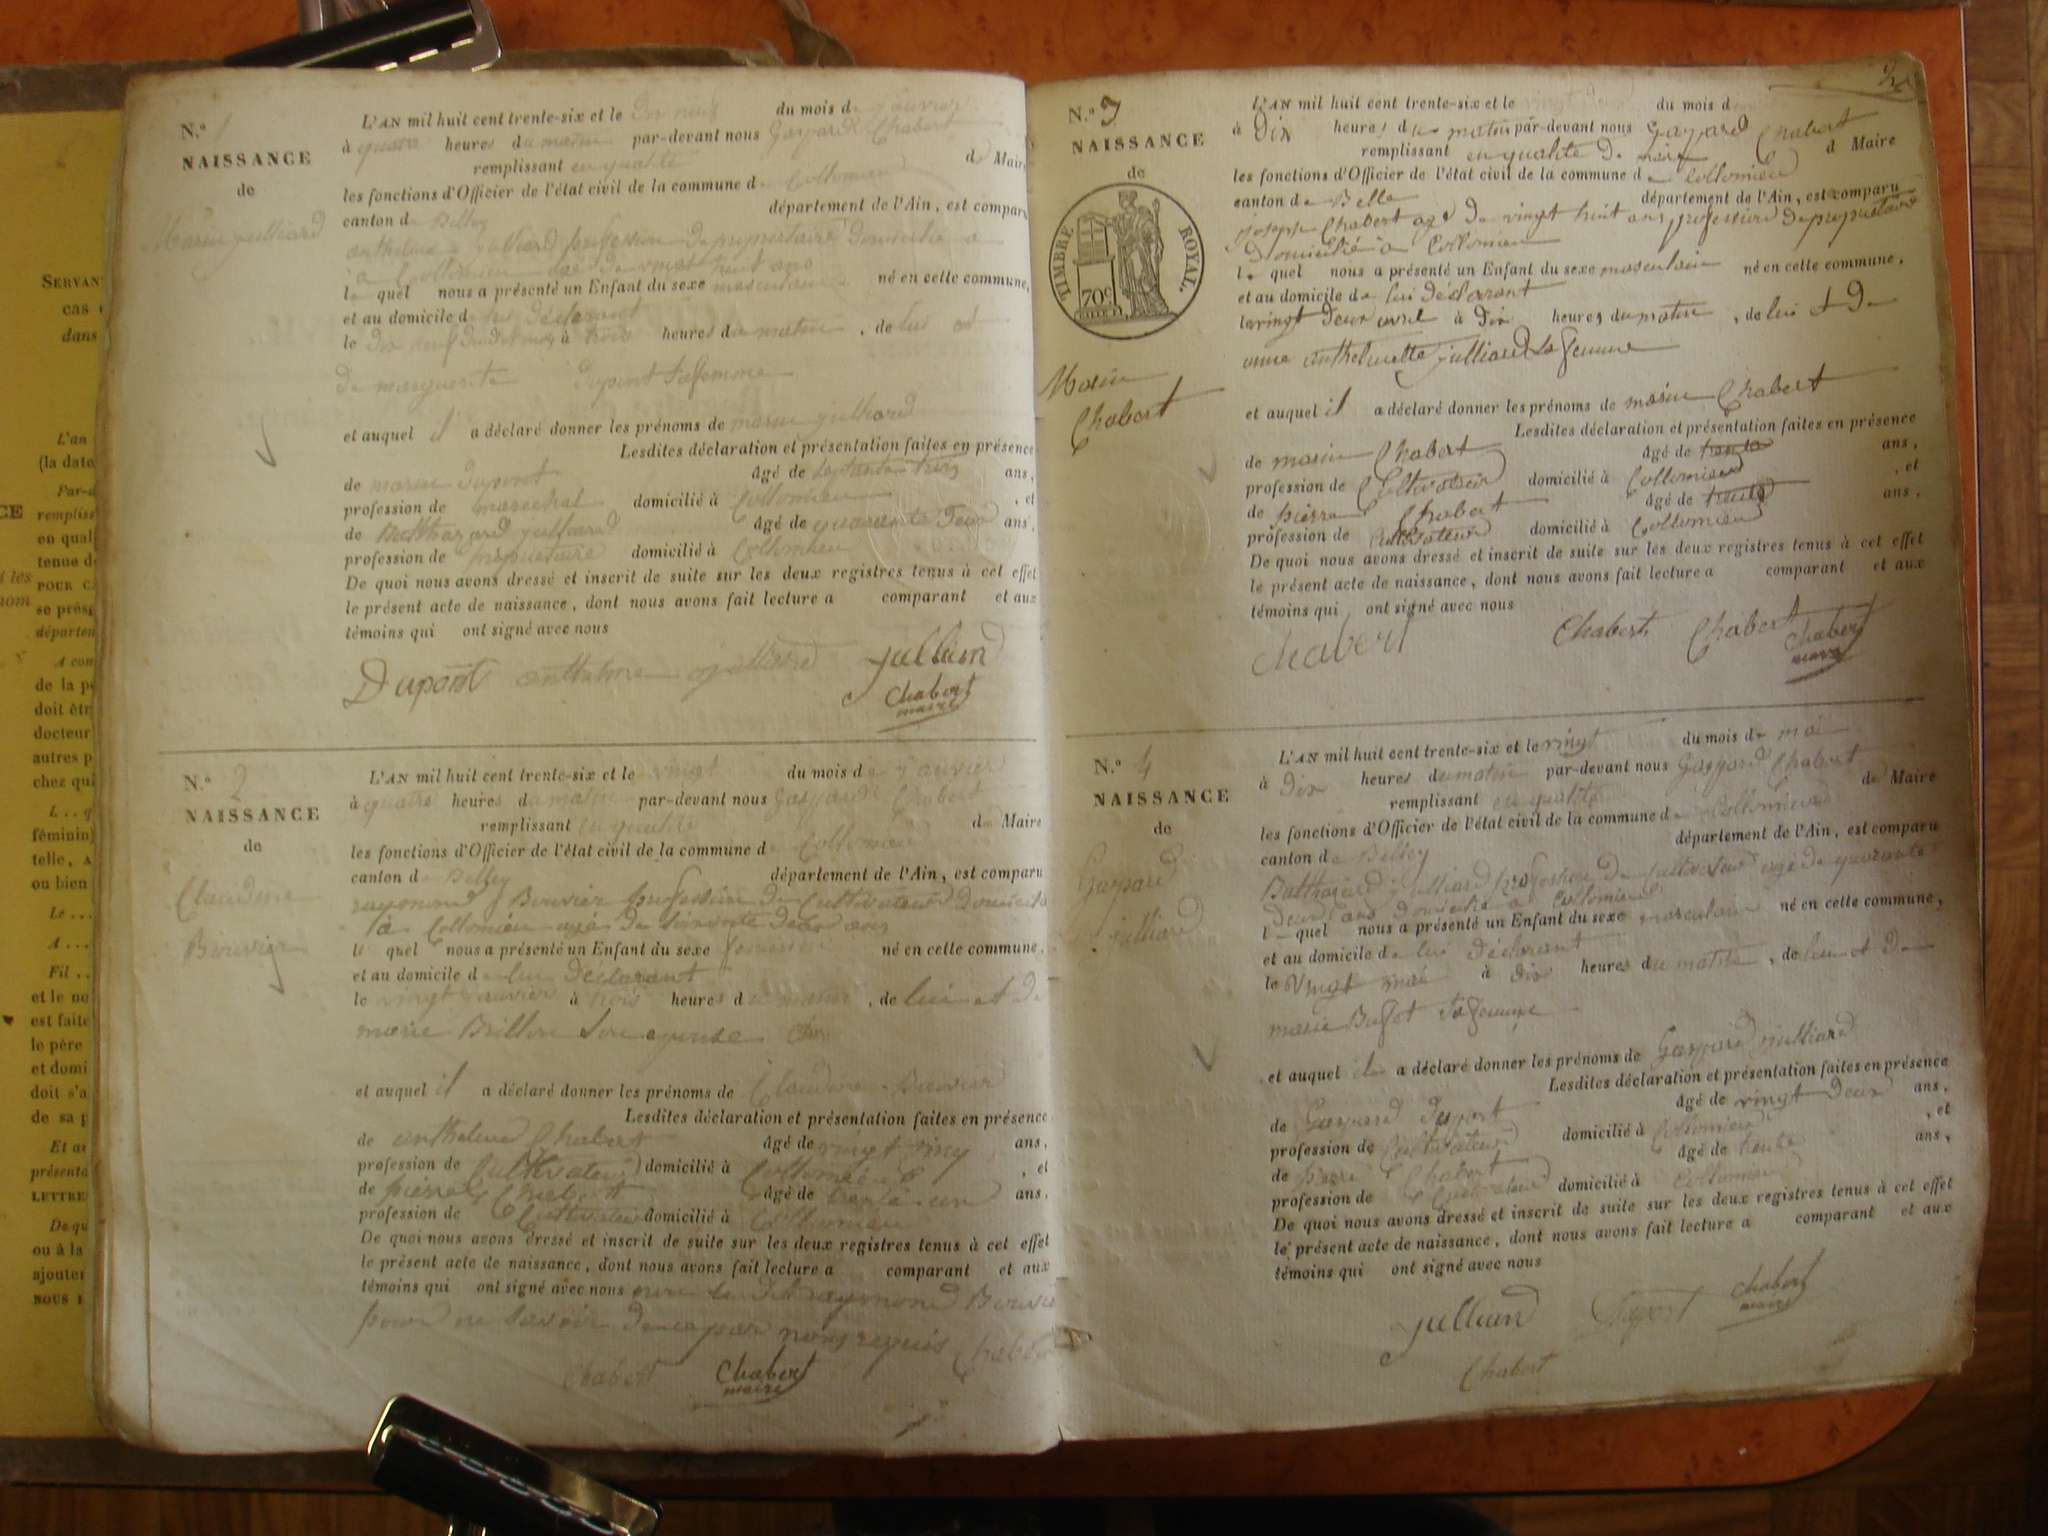 N.º 1
NAISSANCE
de
Marin julliard
L'AN mil huit cent trente-six et le Dix neuf du mois d janvier
à quatre heures du matin par-devant nous Gaspard Chabert
remplissant en qualité de Maire
les fonctions d'Officier de l'état civil de la commune de Collomieu
canton de Belley département de l'Ain, est comparu
anthelme julliard profession de propriétaire domicilié a
a Collomieu agé de vingt huit ans
le quel nous a présenté un Enfant du sexe masculain né en cette commune,
et au domicile d lui déclarant
le Dix neuf dudit mois à trois heures du matin, de lui et
De marguerite Dupont sa femme
et auquel il a déclaré donner les prénoms de marin julliard
Lesdites déclaration et présentation faites en présence
de marin Dupont âgé de septante trois ans,
profession de marechal domicilié à Collomieu, et
de Balthazard julliard âgé de quarante Deux ans,
profession de propriétaire domicilié à Collomieu
De quoi nous avons dressé et inscrit de suite sur les deux registres tenus à cet effet
le présent acte de naissance, dont nous avons fait lecture a comparant et aux
témoins qui ont signé avec nous
Dupont anthelme julliard julliard
Chabert
maire
N.º 2
NAISSANCE
de
Claudine
Bouvier
L'AN mil huit cent trente-six et le vingt du mois de janvier
à quatre heures du matin par-devant nous Gaspard Chabert
remplissant en qualité de Maire
les fonctions d'Officier de l'état civil de la commune d Collomieu
canton de Belley département de l'Ain, est comparu
raymond Bouvier profession de Cultivateur domicilié
à Collomieu agé de soixante deux ans
le quel nous a présenté un Enfant du sexe feminin né en cette commune,
et au domicile de lui déclarant
le vingt janvier à trois heures du matin, de lui et de
marie Brillon son epouse
et auquel il a déclaré donner les prénoms de Claudine Bouvier
Lesdites déclaration et présentation faites en présence
de anthelme Chabert âgé de vingt cinq ans,
profession de Cultivateur domicilié à Collomieu, et
de pierre Chabert âgé de trente un ans,
profession de Cultivateur domicilié à Collomieu
De quoi nous avons dressé et inscrit de suite sur les deux registres tenus à cet effet
le présent acte de naissance, dont nous avons fait lecture a comparant et aux
témoins qui ont signé avec nous le dit raymond Bouvier
pour ne savoir de ce par nous requis Chabert
Chabert Chabert
maire
N.º 3
NAISSANCE
de
TIMBRE ROYAL.
70c
Marin
Chabert
L'AN mil huit cent trente-six et le vingt deux du mois d
à Dix heures du matin par-devant nous Gaspard Chabert
remplissant en qualité de maire d Maire
les fonctions d'Officier de l'état civil de la commune de Collomieu
canton de Belle département de l'Ain, est comparu
joseph Chabert agé de vingt huit ans profession de propriétaire
domicilié a Collomieu
le quel nous a présenté un Enfant du sexe masculain né en cette commune,
et au domicile de lui déclarant
le vingt deux avril à dix heures du matin, de lui et de
anne anthelmette julliard sa femme
et auquel il a déclaré donner les prénoms de marin Chabert
Lesdites déclaration et présentation faites en présence
de marin Chabert âgé de trente ans,
profession de Cultivateur domicilié à Collomieu, et
de pierre Chabert âgé de trente ans,
profession de Cultivateur domicilié à Collomieu
De quoi nous avons dressé et inscrit de suite sur les deux registres tenus à cet effet
le présent acte de naissance, dont nous avons fait lecture a comparant et aux
témoins qui ont signé avec nous
Chabert Chabert Chabert Chabert
maire
N.º 4
NAISSANCE
de
Gaspard
julliard
L'AN mil huit cent trente-six et le vingt du mois de mai
à Dix heures du matin par-devant nous Gaspard Chabert
remplissant en qualité de Maire
les fonctions d'Officier de l'état civil de la commune d Collomieu
canton de Belley département de l'Ain, est comparu
Balthazard julliard profession de Cultivateur agé de quarante
deux ans domicilié a Collomieu
l quel nous a présenté un Enfant du sexe masculain né en cette commune,
et au domicile de lui déclarant
le Vingt mai à dix heures du matin, de lui et de
marie Buffet sa femme
et auquel il a déclaré donner les prénoms de Gaspard julliard
Lesdites déclaration et présentation faites en présence
de Gaspard Dupont âgé de vingt deux ans,
profession de Cultivateur domicilié à Collomieu, et
de pierre Chabert âgé de trente ans,
profession de Cultivateur domicilié à Collomieu
De quoi nous avons dressé et inscrit de suite sur les deux registres tenus à cet effet
le présent acte de naissance, dont nous avons fait lecture a comparant et aux
témoins qui ont signé avec nous
julliard Dupont Chabert
maire
Chabert